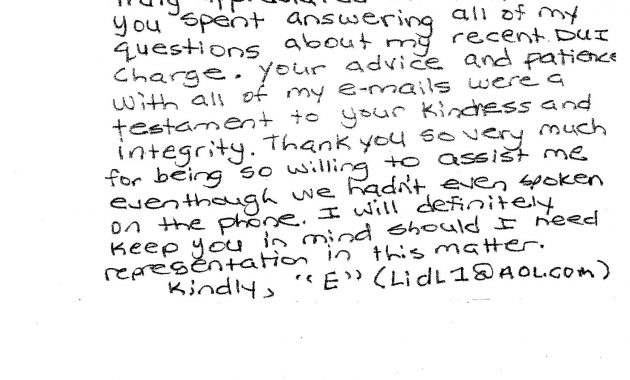 you spent answering all of my
questions about my recent DUI
charge. Your advice and patience
with all of my e-mails were a
testament to your kindness and
integrity. Thank you so very much
for being so willing to assist me
eventhough we hadn't even spoken
on the phone. I will definitely
keep you in mind should I need
representation in this matter.
Kindly, "E" (LidL1@AOL.com)